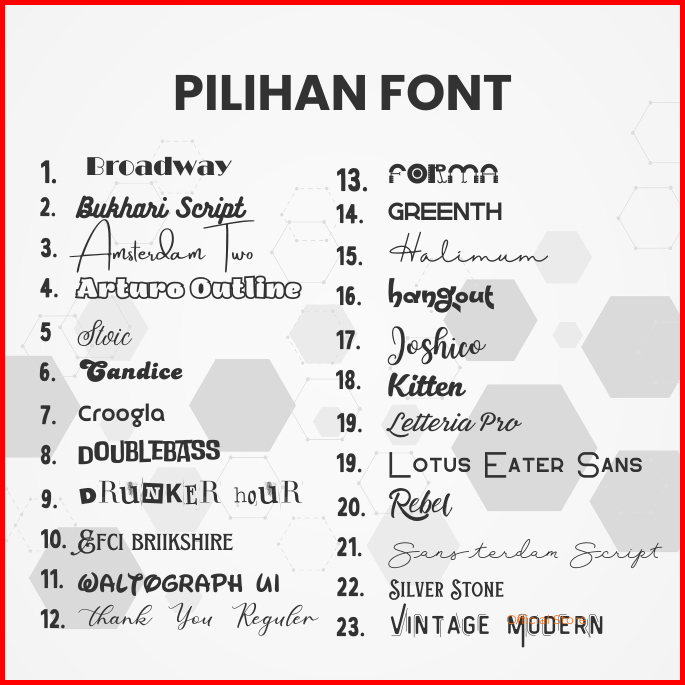 PILIHAN FONT
1. Broadway
2. Bukhari Script
3. Amsterdam Two
4. Arturo Outline
5 Stoic
6. Candice
7. Croogla
8. DOUBLEBASS
9. DRUNKER hOUR
10. EFCI BRIIKSHIRE
11. WALTOGRAPH UI
12. thank You Reguler
13. FORMA
14. GREENTH
15. Halimum
16. hangout
17. Joshico
18. Kitten
19. Letteria Pro
19. LOTUS EATER SANS
20. Rebel
21. Sans-terdam Script
22. SILVER STONE
23. VINTAGE MODERN
Official Store